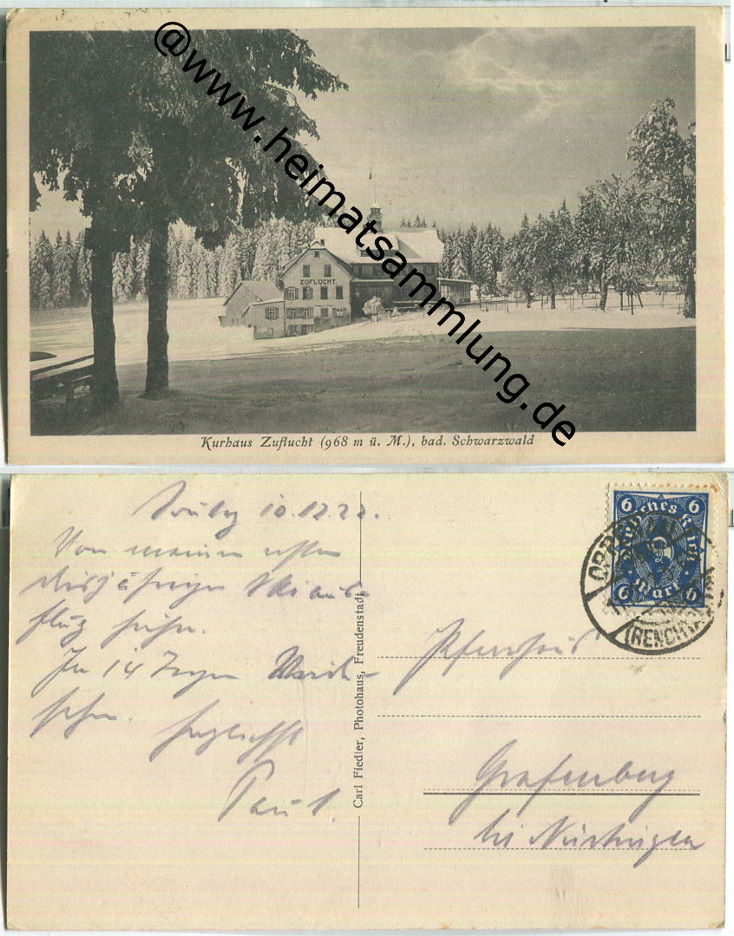 @www.heimatsammlung.de
ZUFLUCHT
Kurhaus Zuflucht (968 m ü. M.), bad. Schwarzwald
10.12.22.
Von meinem ersten
diesjährigen Skiaus-
flug
In 14 Tagen Wieder-
sehen.
herzlichst
Paul.
Carl Fiedler, Photohaus, Freudenstadt
6 6
Deutsches Reich
Mark
6 6
OPPENAU
(RENCHTAL)
Pfarrhaus
Grafenberg
bei Nürtingen